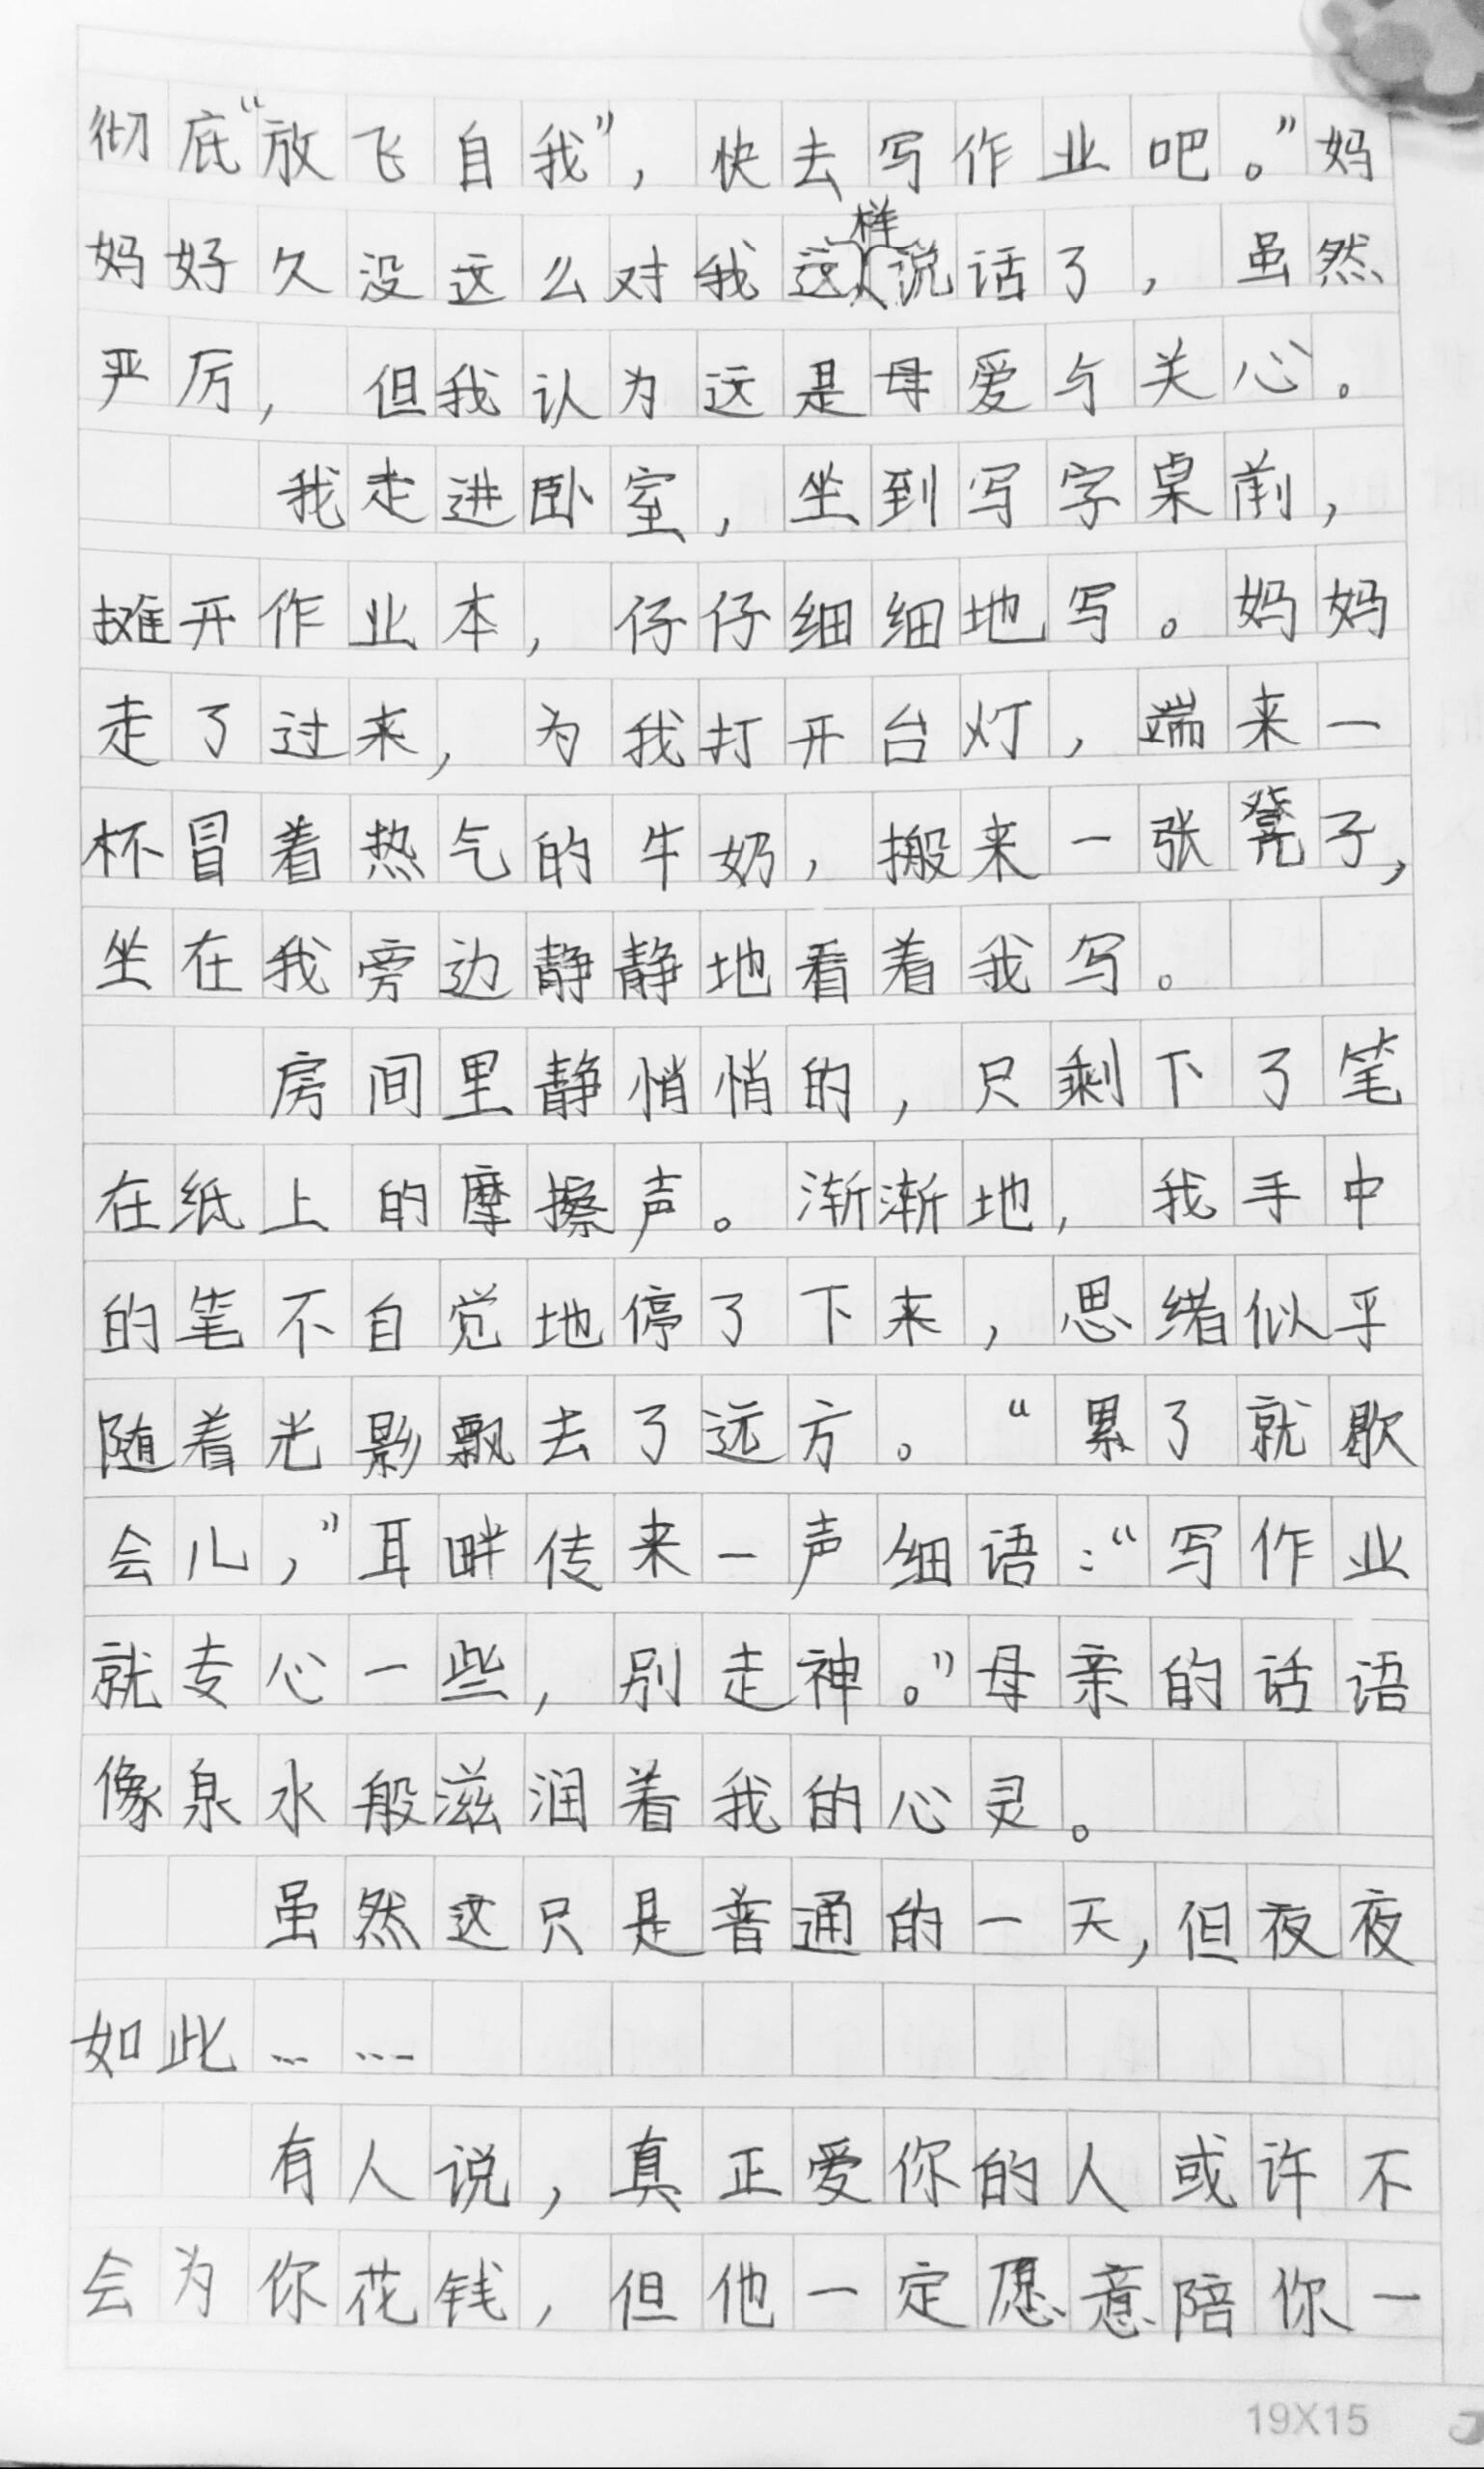 彻底“放飞自我”，快去写作业吧。”妈
妈好久没这么对我这样说话了，虽然
严厉，但我认为这是母爱与关心。
我走进卧室，坐到写字桌前，
摊开作业本，仔仔细细地写。妈妈
走了过来，为我打开台灯，端来一
杯冒着热气的牛奶，搬来一张凳子，
坐在我旁边静静地看着我写。
房间里静悄悄的，只剩下了笔
在纸上的摩擦声。渐渐地，我手中
的笔不自觉地停了下来，思绪似乎
随着光影飘去了远方。“累了就歇
会儿，”耳畔传来一声细语：“写作业
就专心一些，别走神。”母亲的话语
像泉水般滋润着我的心灵。
虽然这只是普通的一天，但夜夜
如此……
有人说，真正爱你的人或许不
会为你花钱，但他一定愿意陪你一
19X15